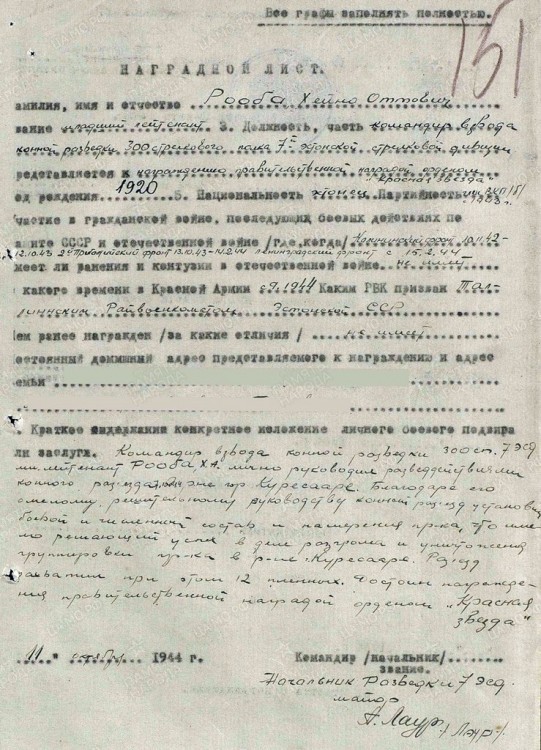 Все графы заполнять полностью.
151
НАГРАДНОЙ ЛИСТ.
амилия, имя и отчество Рооба Хейно Оттович
вание младший лейтенант 3. Должность, часть командир взвода
конной разведки 300 стрелкового полка 7й эстонской стрелковой дивизии
редставляется к награждению правительственной наградой орденом
"Красная звезда"
од рождения 1920 5. Национальность эстонец Партийность
частие в гражданской войне, последующих боевых действиях по
ащите СССР и отечественной войне /где, когда/ Калининский фронт 10.11.42-
12.10.43 2й Прибалтийский фронт 13.10.43-14.2.44 Ленинградский фронт с 15.2.44
меет ли ранения и контузии в отечественной войне не имеет
какого времени в Красной Армии Каким РВК призван Тал-
линнским Райвоенкоматом Эстонской ССР
ем ранее награжден /за какие отличия/ не имеет
остоянный домашный адрес представляемого к награждению и адрес
семьи
. Краткое конкретное изложение личного боевого подвига
ли заслуги. Командир взвода конной разведки 300 сп. 7 Эсд
мл. лейтенант Рооба Х.А. лично руководил разведдействиями
конного разъезда в р-не гор Курессааре. Благодаря его
смелому, решительному руководству конный разъезд установил
боевой и численный состав и намерения пр-ка, что име-
ло решающий успех в деле разгрома и уничтожения
группировки пр-ка в р-не г. Курессааре. Разъезд
захватил при этом 12 пленных. Достоин награжде-
ния правительственной наградой орденом "Красная
звезда"
"11" октября 1944 г.
Командир /начальник/
звание.
Начальник Разведки 7 Эсд.
майор
А. Лаур /Лаур/